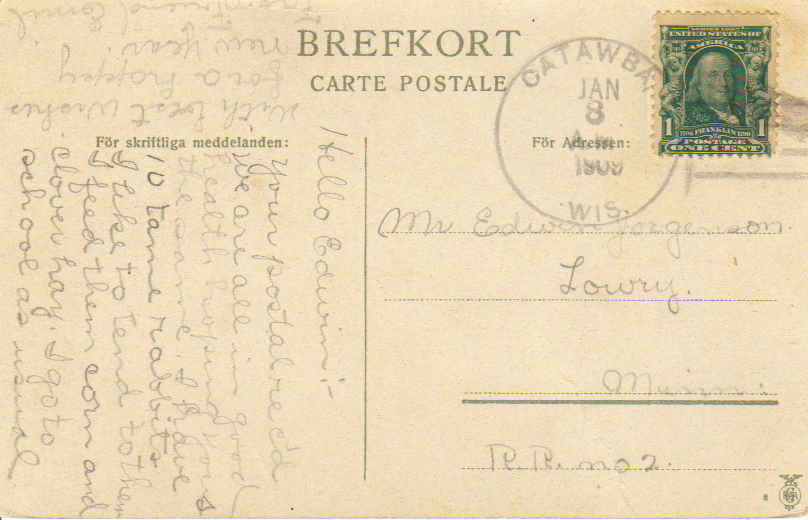 BREFKORT
CARTE POSTALE
För skriftliga meddelanden:
För Adressen:
CATAWBA,
JAN
8
1909
WIS.
UNITED STATES OF
AMERICA
1 FRANKLIN 1
POSTAGE
ONE CENT
Mr Edwin Jorgenson
Lowry.
Minn.
R.R. no 2.
Hello Edwin:-
Your postal rec'd
We are all in good
health hoping you
the same. I have
10 tame rabbits
I like to tend to them
I feed them corn and
clover hay. I go to
school as usual
With best wishes
for a happy
new year
from friend Emil
8